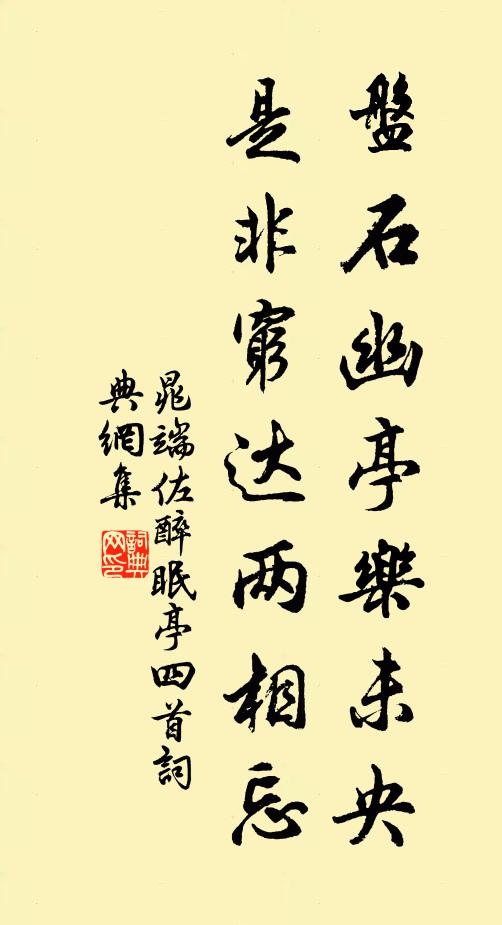 盤石幽亭樂未央
是非窮达两相忘
晁端佐醉眠亭四首詞
典網集
詞典
网印